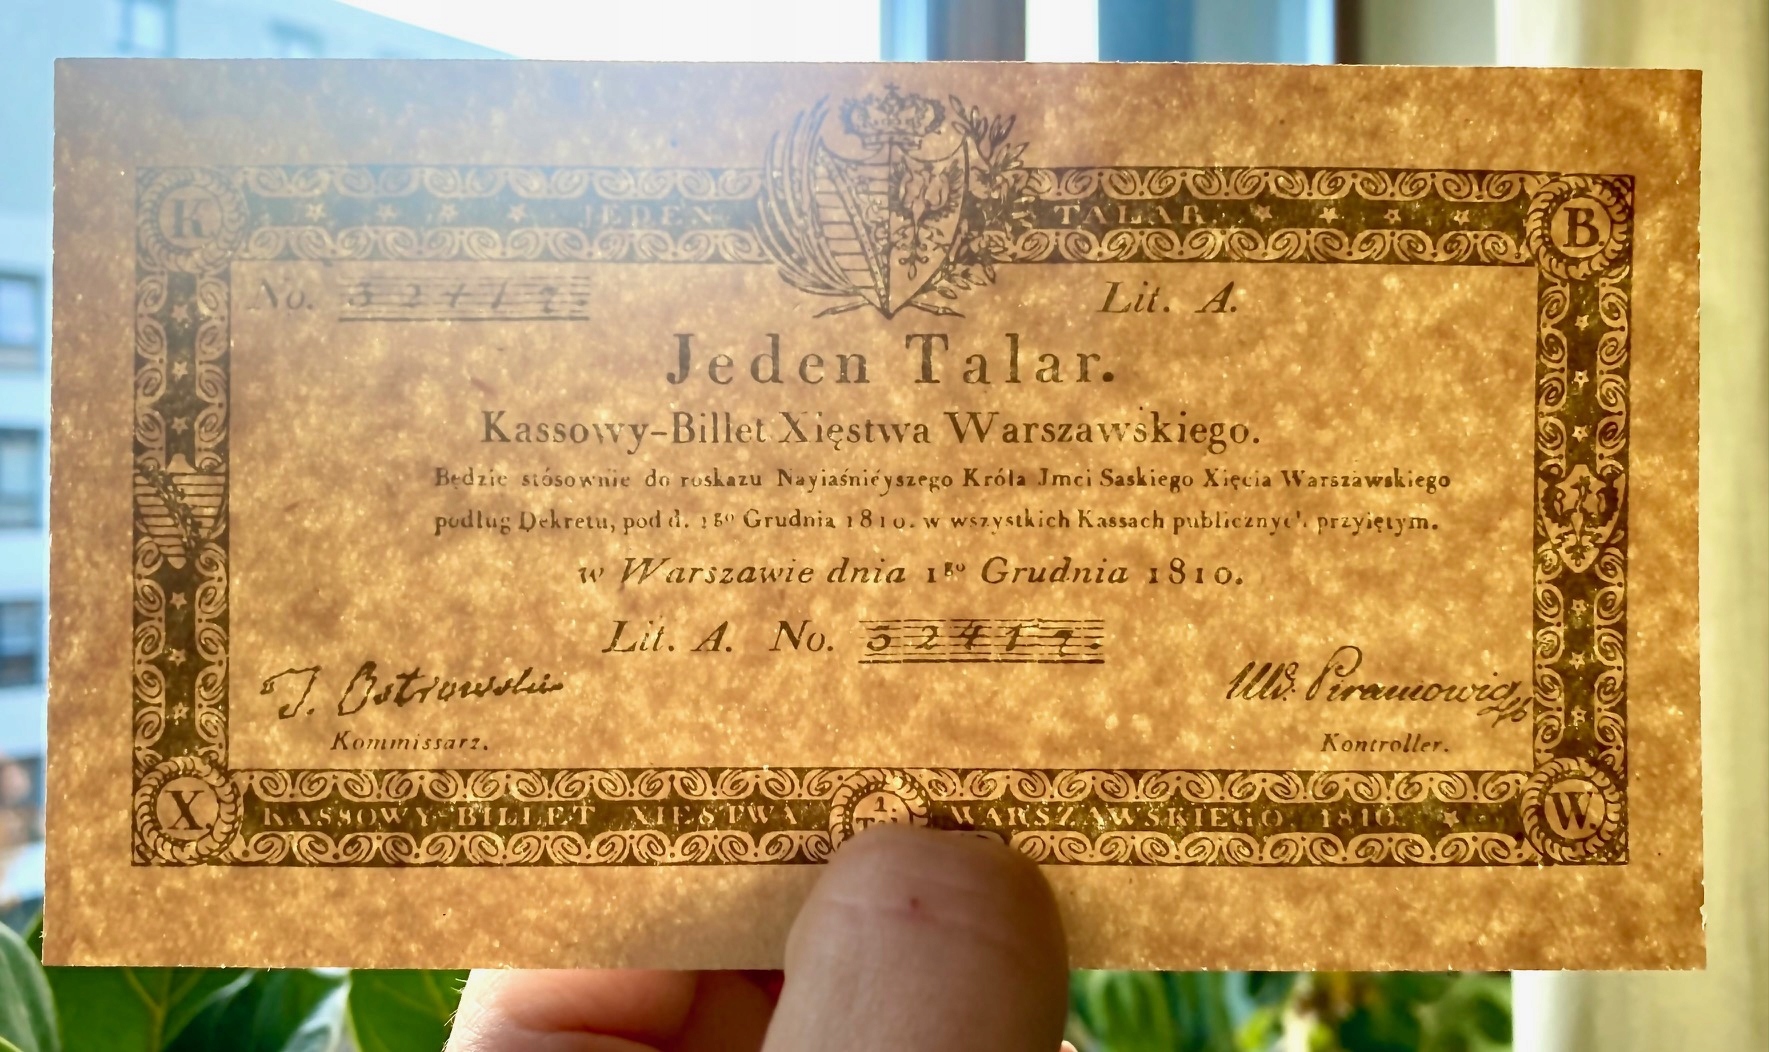 K
JEDEN TALAR
B.
No. 32417. Lit. A.
Jeden Talar.
Kassowy-Billet Xięstwa Warszawskiego.
Będzie stósownie do roskazu Nayiaśniéyszego Króla Jmci Saskiego Xięcia Warszawskiego
podług Dekretu, pod d. 1go Grudnia 1810. w wszystkich Kassach publicznych przyiętym.
w Warszawie dnia 1go Grudnia 1810.
Lit. A. No. 32417.
J. Ostrowski
Kommissarz. Kontroller.
X
KASSOWY-BILLET XIESTWA 1 WARSZAWSKIEGO. 1810.
W.